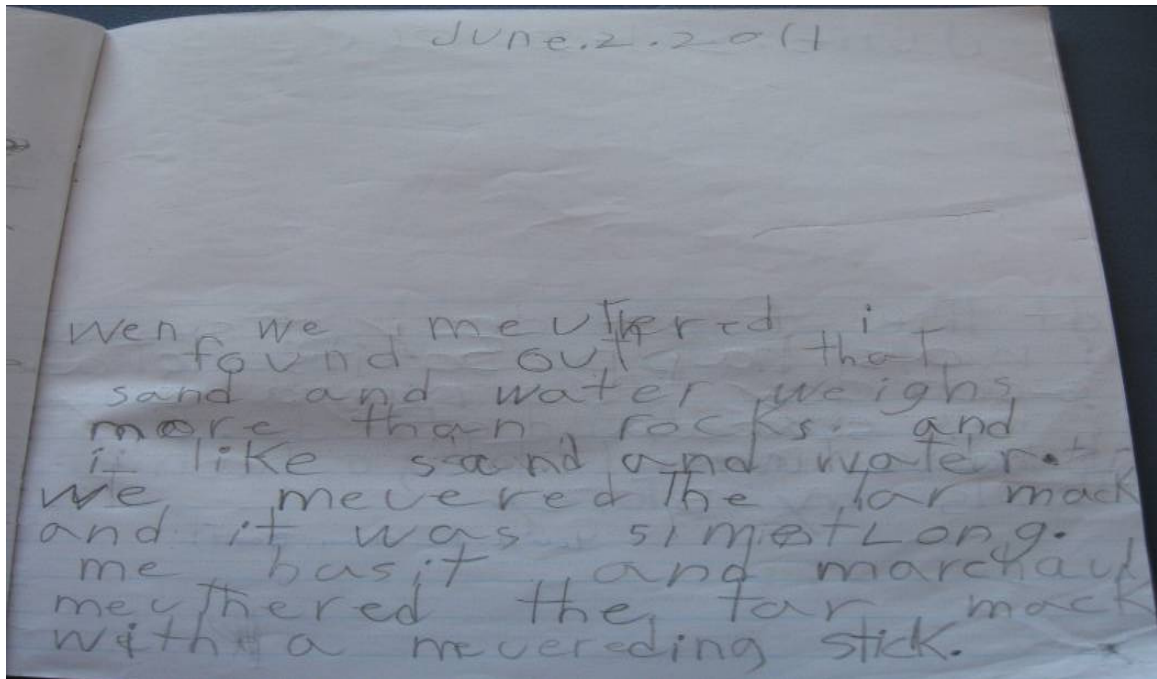 June.2.2011
Wen we meuthered i
found out that
sand and water weighs
more than rocks. and
i like sand and water.
we mevered The tar mack
and it was Long.
me basit and
meuthered the tar mack
with a mevereding stick.